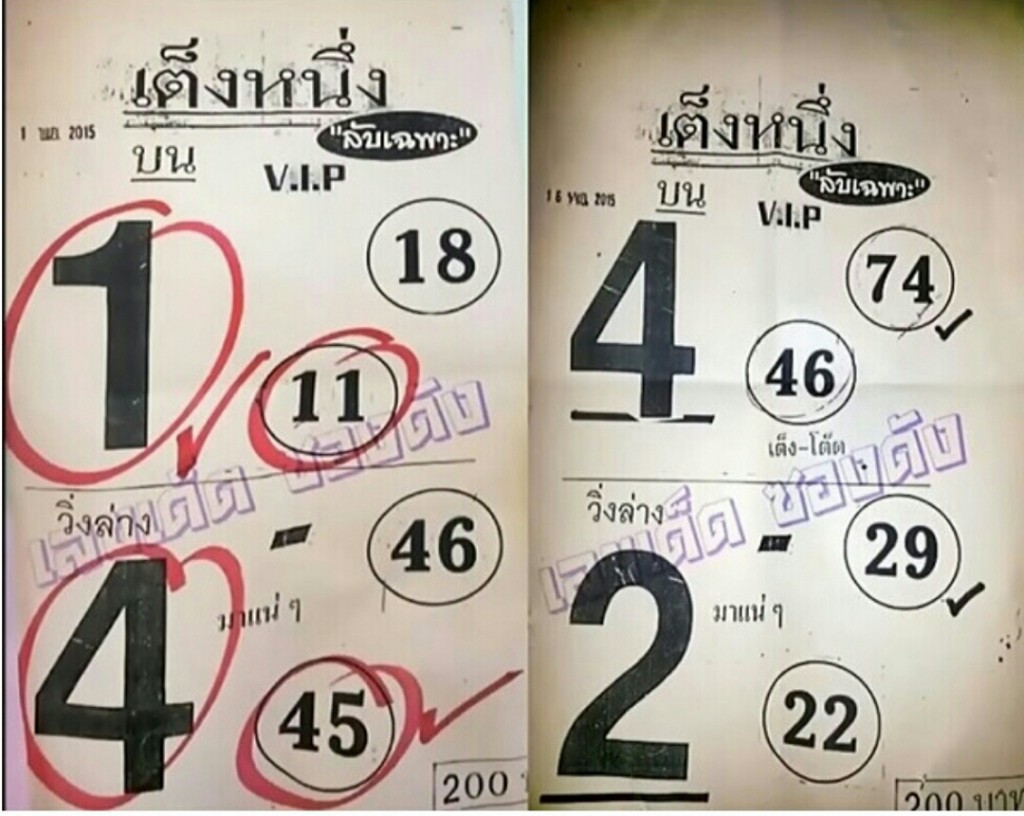 เต็งหนึ่ง
1 เมย 2015
"ลับเฉพาะ"
บน
V.I.P
1
18
11
วิ่งล่าง
-
46
4
มาแน่ ๆ
45
200
เลขเด็ด ซองดัง
เต็งหนึ่ง
"ลับเฉพาะ"
16 พค 2015
บน
V.I.P
4
74
46
เต็ง-โต๊ด
วิ่งล่าง
-
29
2
มาแน่ ๆ
22
200 บาท
เลขเด็ด ซองดัง